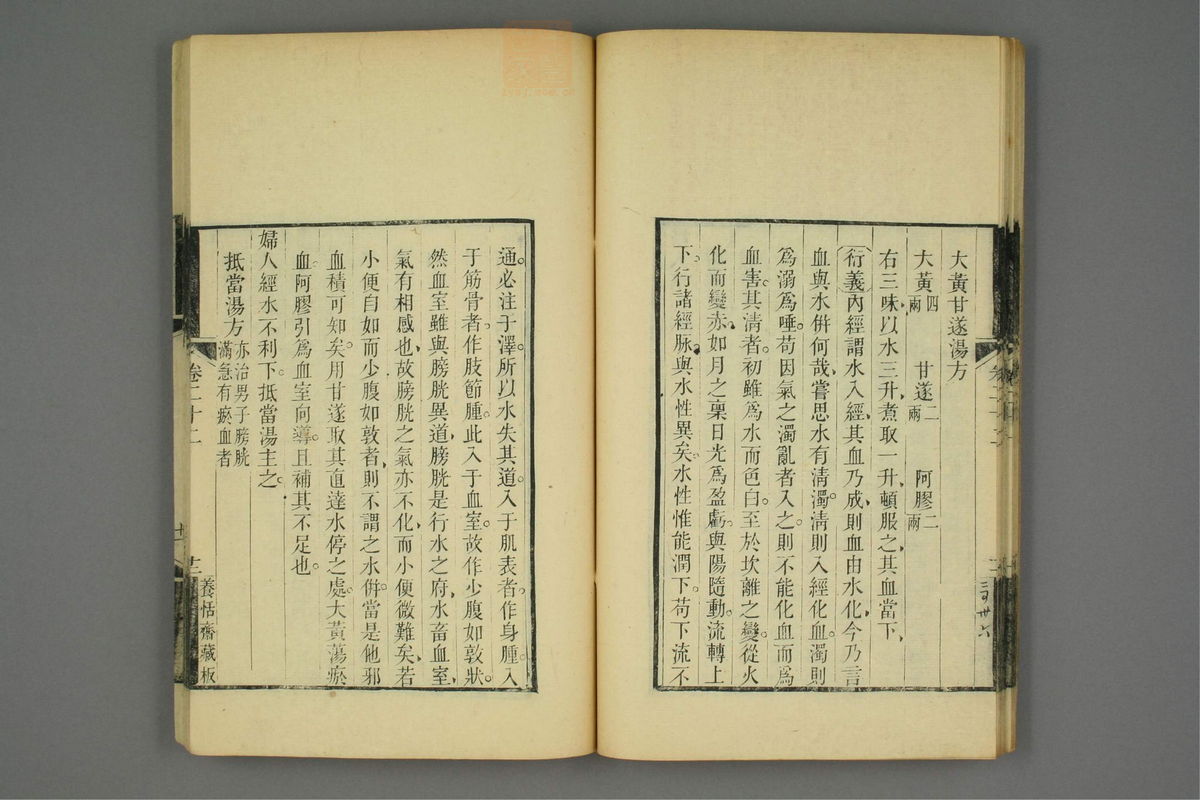 大黃甘遂湯方
大黃四兩 甘遂二兩 阿膠二兩
右三味以水三升煮取一升頓服之其血當下
衍義內經謂水入經其血乃成則血由水化今乃言
血與水併何哉嘗思水有清濁清則入經化血濁則
爲溺爲唾苟因氣之濁亂者入之則不能化血而爲
血害其清者初雖爲水而色白至於坎離之變從火
化而變赤如月之稟日光爲盈虧與陽隨動流轉上
下行諸經脉與水性異矣水性惟能潤下苟下流不
三廿六
通必注于澤所以水失其道入于肌表者作身腫入
于筋骨者作肢節腫此入于血室故作少腹如敦狀
然血室雖與膀胱異道膀胱是行水之府水畜血室
氣有相感也故膀胱之氣亦不化而小便微難矣若
小便自如而少腹如敦者則不謂之水併當是他邪
血積可知矣用甘遂取其直達水停之處大黃蕩瘀
血阿膠引爲血室向導且補其不足也
婦人經水不利下抵當湯主之
抵當湯方亦治男子膀胱滿急有瘀血者
卷二十二
十二
養恬齋藏板